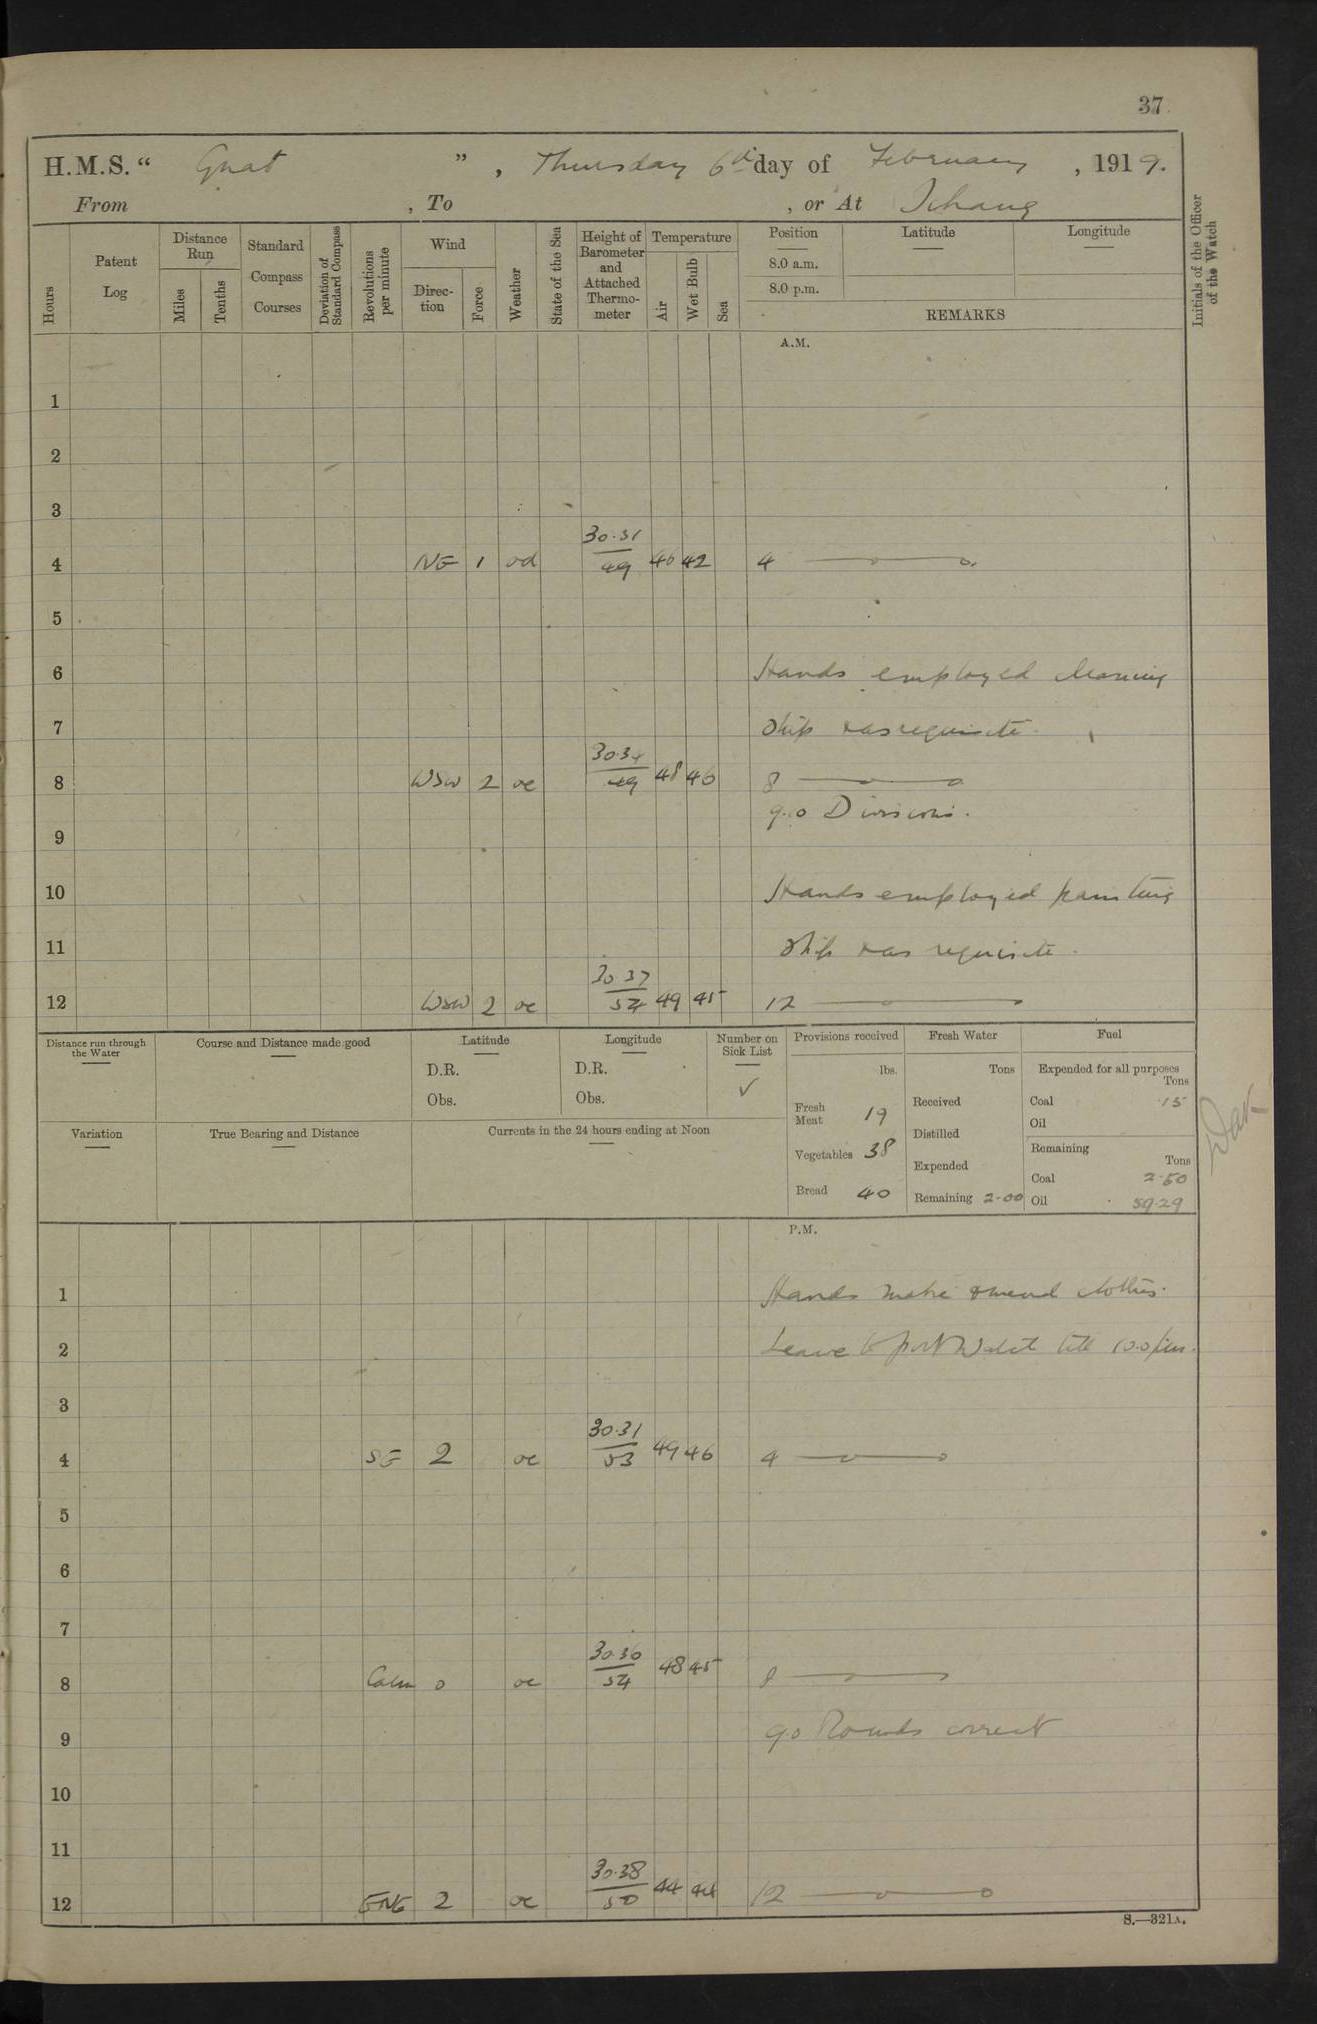 37
H.M.S. “ Gnat ”, Thursday 6th day of February, 1919.
From , To , or At Ichang
Hours
Patent Log
Distance Run
Miles
Tenths
Standard Compass Courses
Deviation of Standard Compass
Revolutions per minute
Wind
Direction
Force
Weather
State of the Sea
Height of Barometer and Attached Thermometer
Temperature
Air
Wet Bulb
Sea
Position
8.0 a.m.
8.0 p.m.
Latitude
Longitude
REMARKS
Initials of the Officer of the Watch
A.M.
1
2
3
4 NE 1 od 30.31 49 46 42 4
5
6 Hands employed cleaning
7 Ship & as requisite.
8 WSW 2 oc 30.34 49 48 46 8
9.0 Divisions.
9
10 Hands employed painting
11 Ship & as requisite.
12 WSW 2 oc 30 37 54 49 45 12
Distance run through the Water
Course and Distance made good
Latitude
D.R.
Obs.
Longitude
D.R.
Obs.
Number on Sick List
✓
Provisions received
lbs.
Fresh Meat 19
Vegetables 38
Bread 40
Fresh Water
Tons
Received
Distilled
Expended
Remaining 2.00
Fuel
Expended for all purposes
Tons
Coal .15
Oil
Remaining
Tons
Coal 2.50
Oil 59.29
Variation
True Bearing and Distance
Currents in the 24 hours ending at Noon
P.M.
1 Hands make & mend clothes.
2 Leave to port Watch till 10.0 pm.
3
4 SE 2 oc 30.31 53 49 46 4
5
6
7
8 Calm 0 oc 30.36 54 48 45 8
9 9.0 Rounds correct
10
11
12 ENE 2 oc 30.38 50 44 44 12
S.—321A.